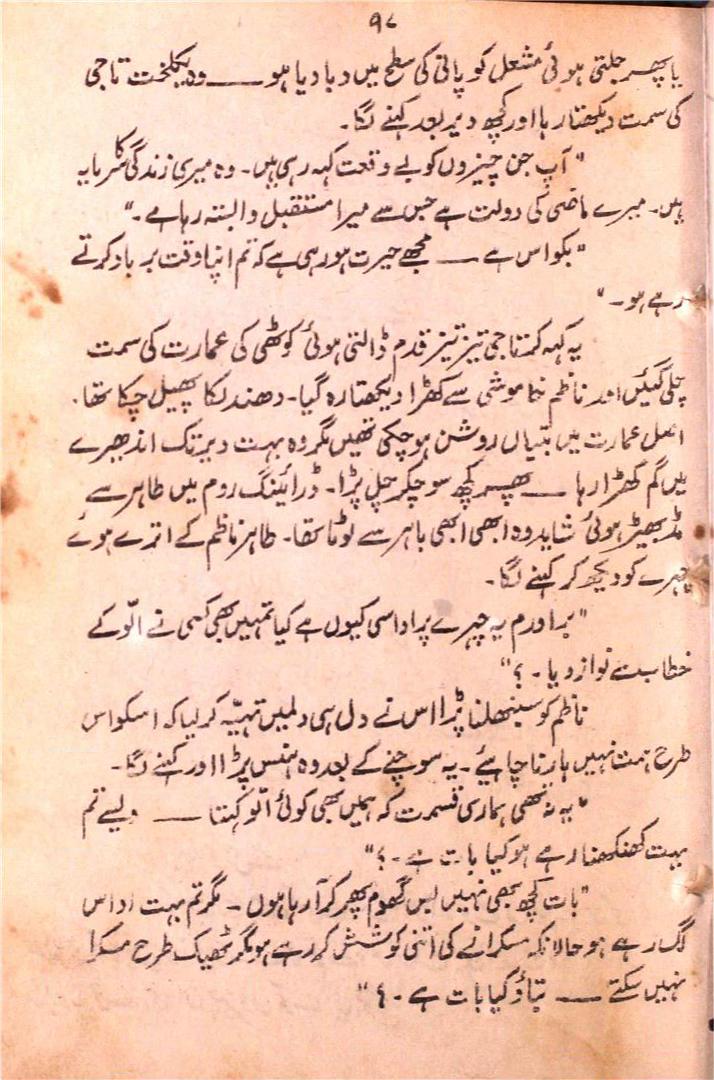 ۹۷
یا پھر جلتی ہوئی مشعل کو پانی کی سطح میں دبا دیا ہو ــــ وہ یکلخت تاجی
کی سمت دیکھتا رہا اور کچھ دیر بعد کہنے لگا۔
"آپ جن چیزوں کو بے وقعت کہہ رہی ہیں۔ وہ میری زندگی کا سرمایہ
ہیں۔ میرے ماضی کی دولت ہے جس سے میرا مستقبل وابستہ رہا ہے۔"
"بکواس ہے ــــ مجھے حیرت ہو رہی ہے کہ تم اپنا وقت برباد کرتے
رہے ہو۔"
یہ کہہ کر تاجی تیز تیز قدم ڈالتی ہوئی کوٹھی کی عمارت کی سمت
چلی گئیں اور ناظم خاموشی سے کھڑا دیکھتا رہ گیا۔ دھندلکا پھیل چکا تھا۔
اصل عمارت میں بتیاں روشن ہو چکی تھیں مگر وہ بہت دیر تک اندھیرے
میں گم کھڑا رہا ــــ پھر کچھ سوچکر چل پڑا۔ ڈرائینگ روم میں طاہر سے
مڈبھیڑ ہوئی شاید وہ ابھی ابھی باہر سے لوٹا تھا۔ طاہر ناظم کے اترے ہوئے
چہرے کو دیکھ کر کہنے لگا۔
"برادرم یہ چہرے پر اداسی کیوں ہے کیا تمہیں بھی کسی نے الّو کے
خطاب سے نواز دیا۔؟"
ناظم کو سنبھلنا پڑا اس نے دل ہی دلمیں تہیّہ کر لیا کہ اسکو اس
طرح ہمت نہیں ہارنا چاہیئے۔ یہ سوچنے کے بعد وہ ہنس پڑا اور کہنے لگا۔
"یہ نہ تھی ہماری قسمت کہ ہمیں بھی کوئی الّو کہتا ــــ ویسے تم
بہت کھنکھنا رہے ہو کیا بات ہے۔؟"
"بات کچھ بھی نہیں بس گھوم پھر کر آ رہا ہوں۔ مگر تم بہت اداس
لگ رہے ہو حالانکہ مسکرانے کی اتنی کوشش کر رہے ہو مگر ٹھیک طرح مسکرا
نہیں سکتے ــــ بتاؤ کیا بات ہے۔؟"